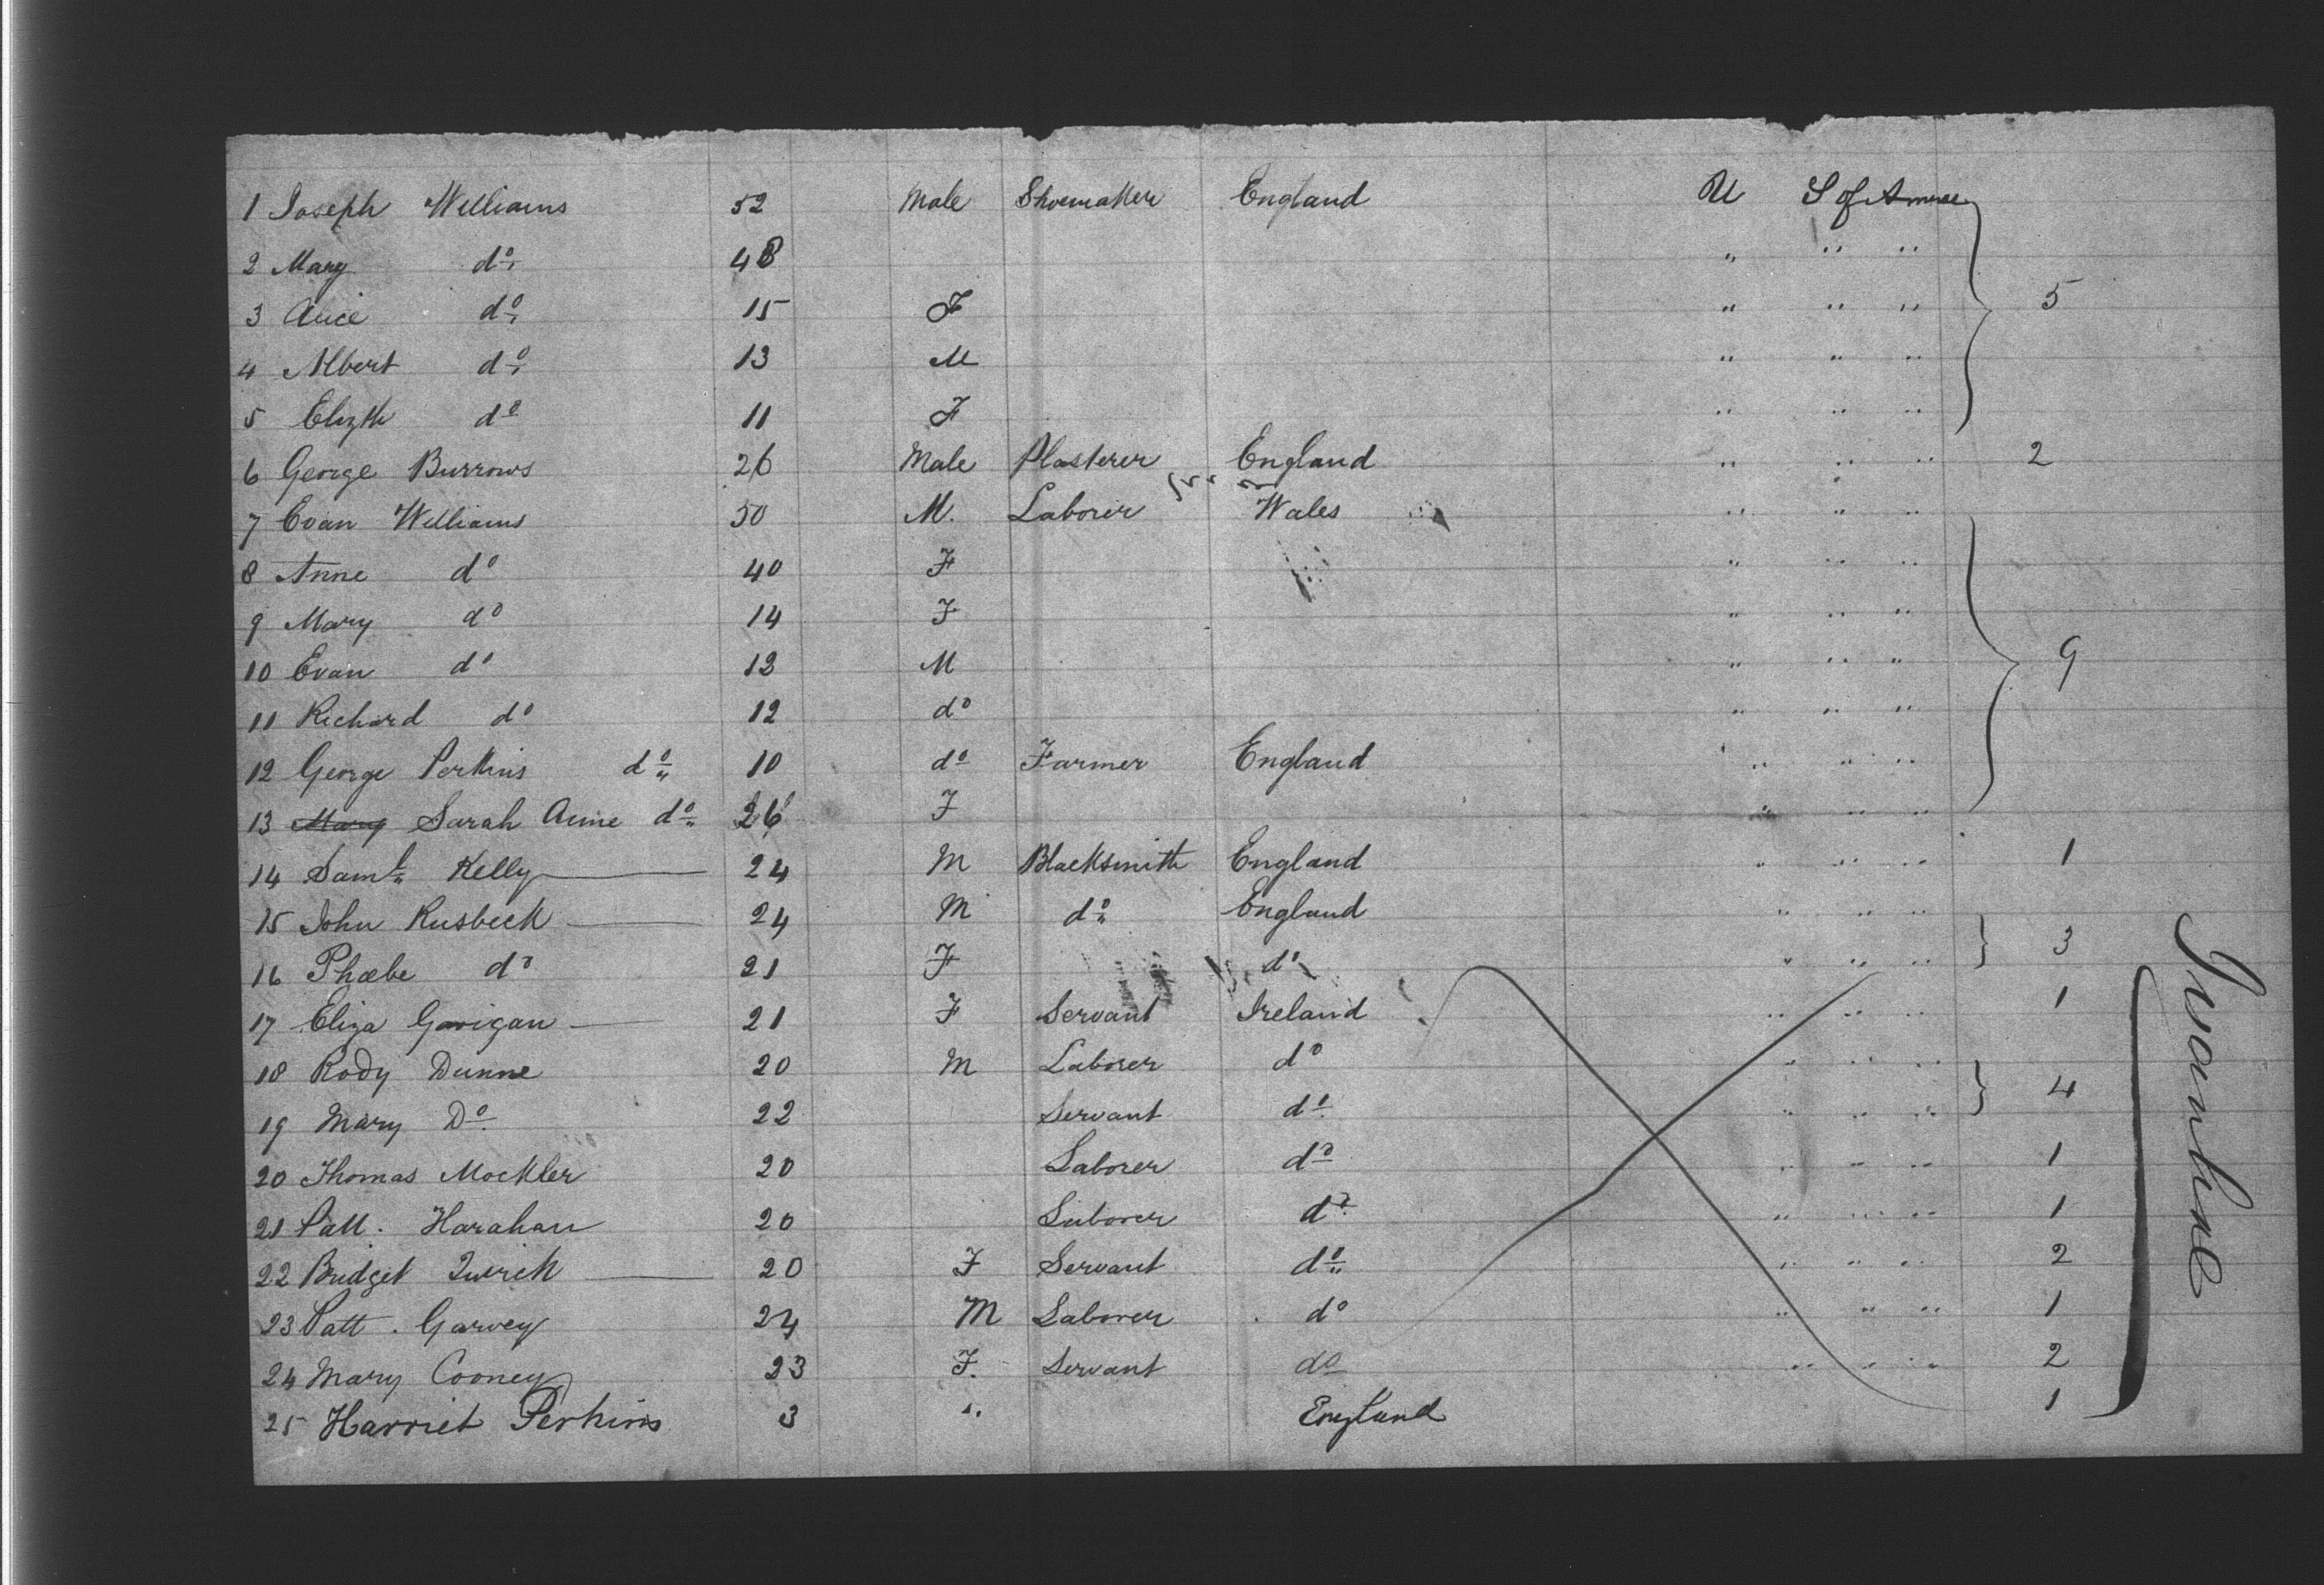 1 Joseph Williams 52 Male Shoemaker England U S of
2 Mary do 48 " " "
3 Alice do 15 F " " " 5
4 Albert do 13 M " " "
5 Elizth do 11 F " " "
6 George Burrows 26 Male Plasterer England " " " 2
7 Evan Williams 50 M. Laborer Wales " " "
8 Anne do 40 F " " "
9 Mary do 14 F " " "
10 Evan do 12 M " " " 9
11 Richard do 12 do " " "
12 George Perkins do 10 do Farmer England " " "
13 Mary Sarah Anne do 26 F " " "
14 Saml Kelly 24 M Blacksmith England " " " 1
15 John Rusbeck 24 M do England " " "
16 Phœbe do 21 F do " " " 3
17 Eliza Garigan 21 F Servant Ireland " " " 1
18 Rody Dunne 20 M Laborer do " " "
19 Mary Do 22 Servant do " " " 4
20 Thomas Mockler 20 Laborer do " " " 1
21 Patt. Harahan 20 Laborer do " " " 1
22 Bridget 20 F Servant do " " " 2
23 Patt. Garvey 24 M Laborer do " " " 1
24 Mary Cooney 23 F. Servant do " " " 2
25 Harriet Perkins 3 ". England 1